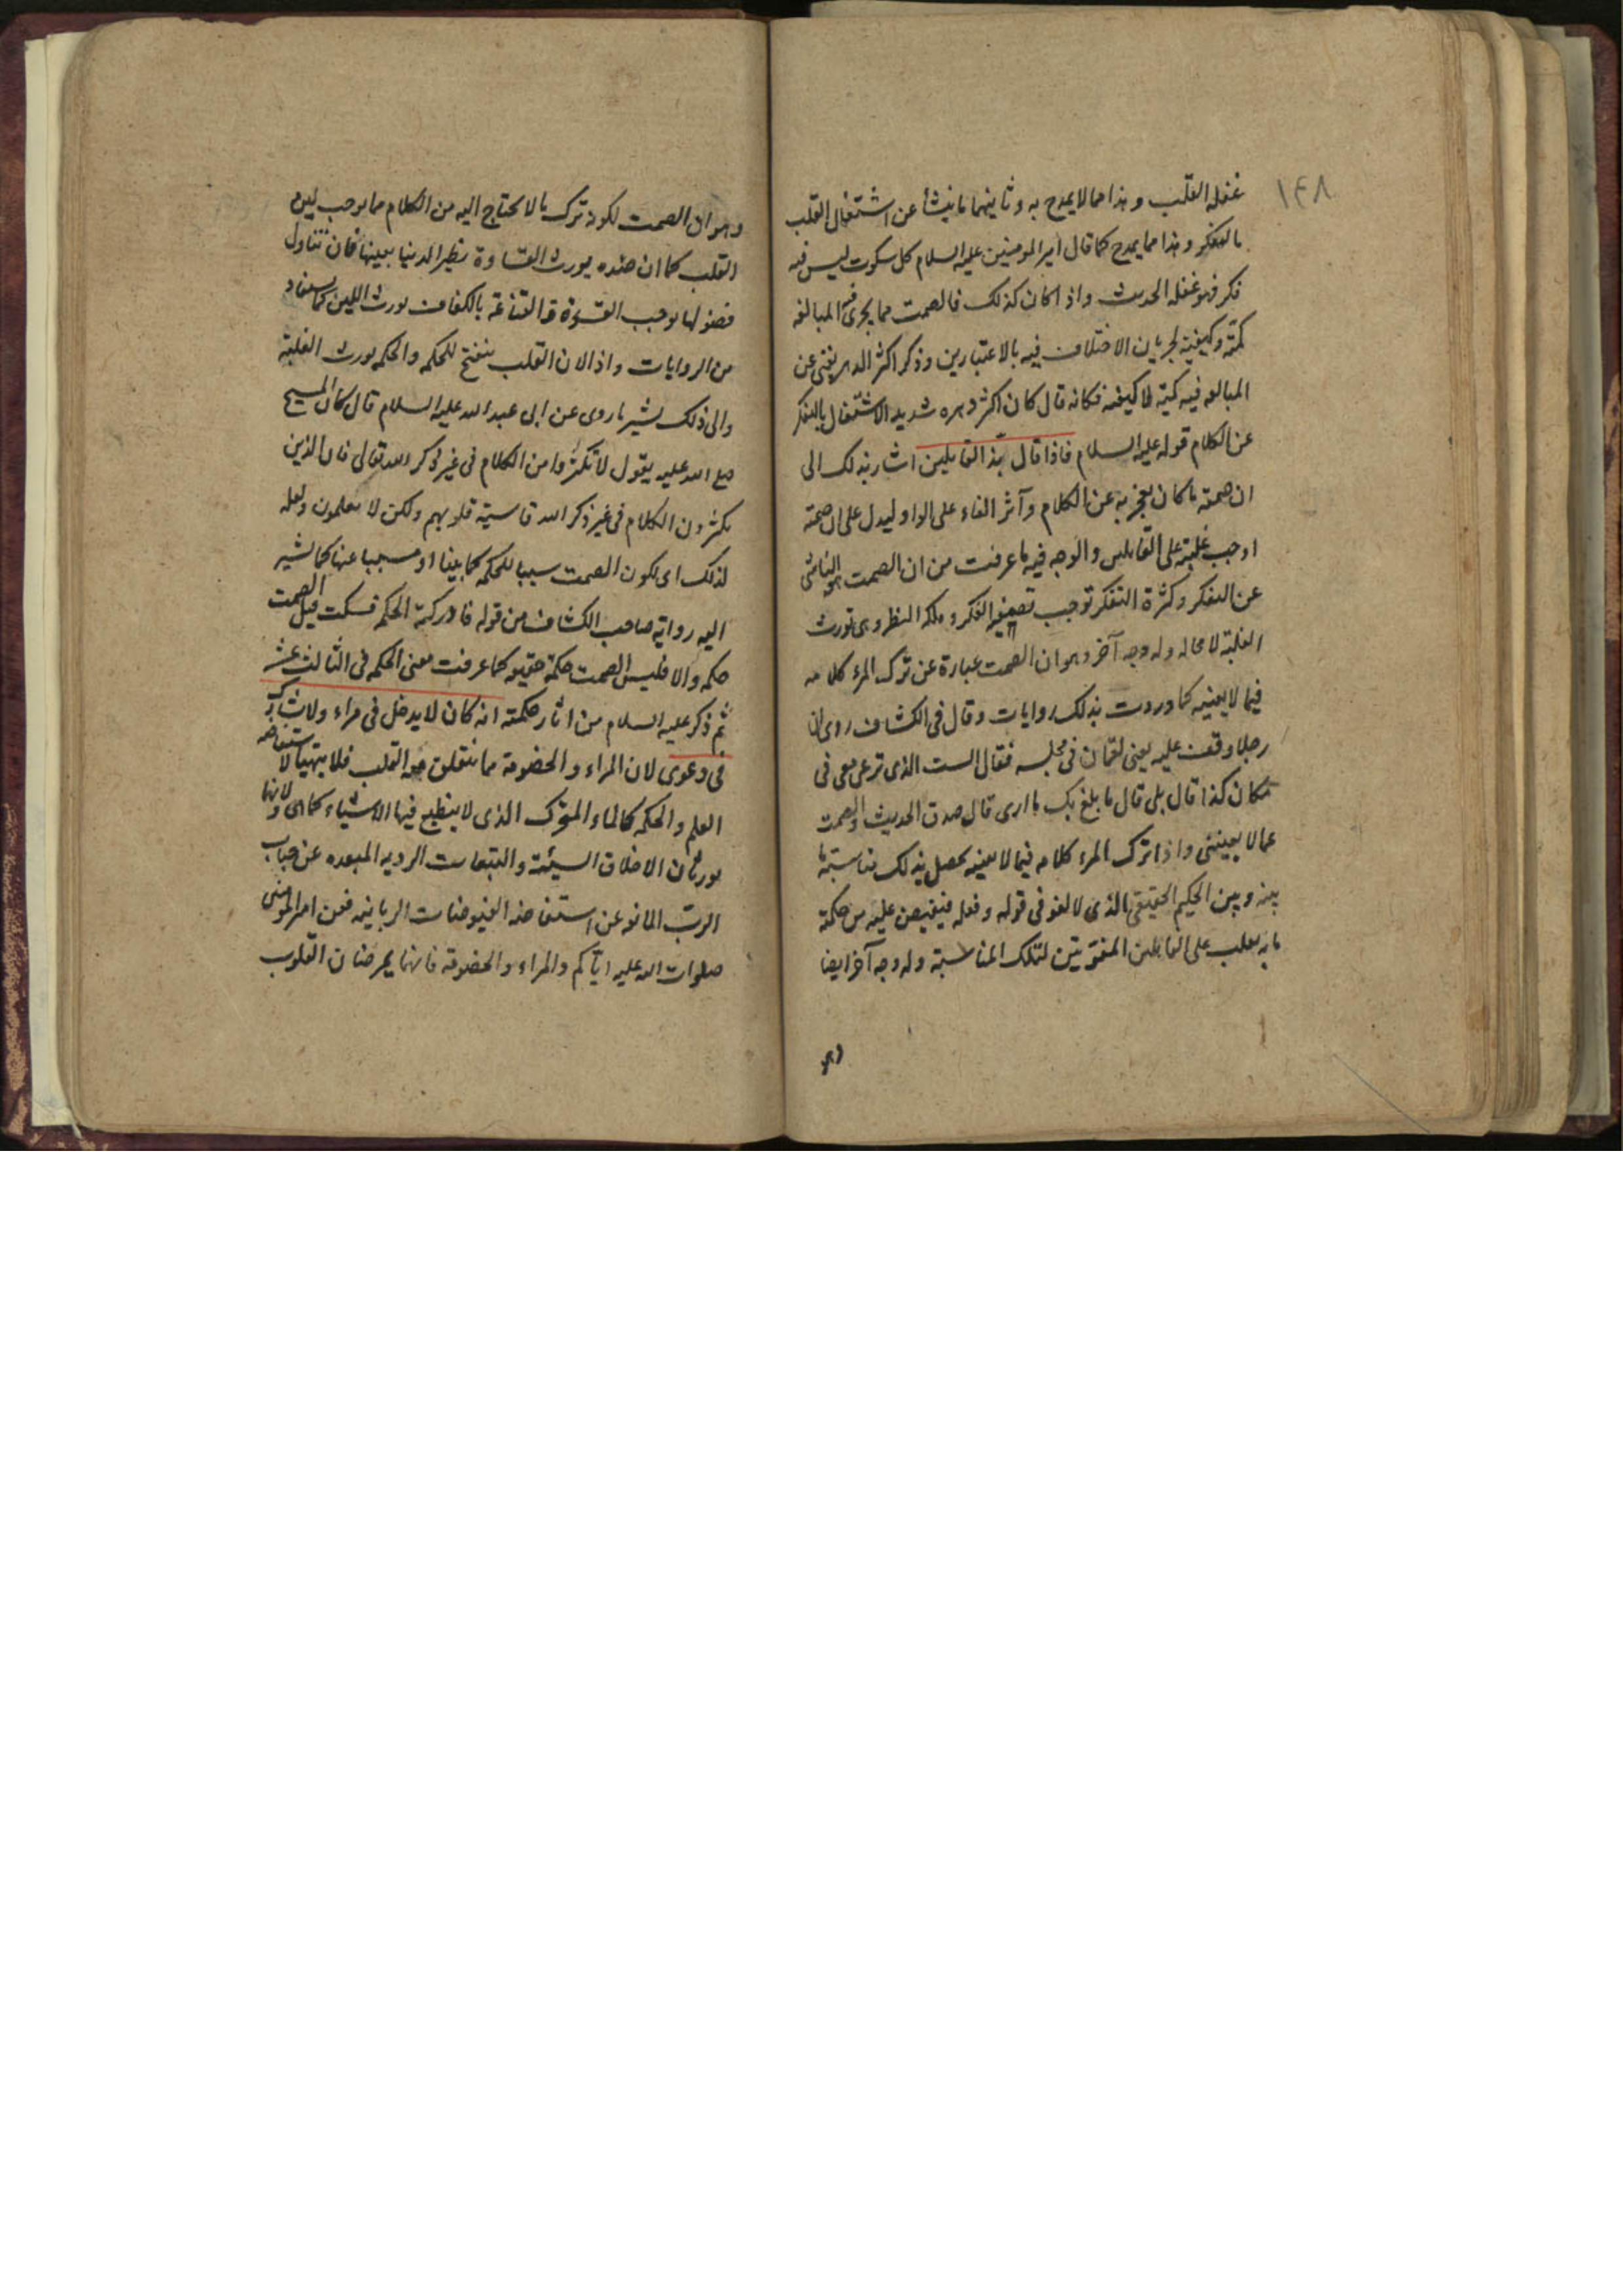 ١٤٨
غفله القلب و هذا مما لا يمدح به و ثانيهما ما ينشأ عن اشتغال القلب
بالتفكر و هذا مما يمدح كما قال امير المومنين عليه السلام كل سكوت ليس فيه
فكر فهو غفله الحديث و اذا كان كذلك فالصمت مما يجرى فيه المبالغه
كمّية و كيفية لجريان الاختلاف فيه بالاعتبارين و ذكر اكثر الدهر يغنى عن
المبالغه فيه كمية لا كيفيه فكانه قال كان اكثر دهره شديد الاشتغال بالتفكر
عن الكلام قوله عليه السلام فاذا قال بذّ القايلين اشار بذلك الى
ان صمته ما كان بعجز به عن الكلام و آثر الفاء على الواو ليدل على ان صمته
اوجب غلبته على القايلين و الوجه فيه ما عرفت من ان الصمت هو الناشى
عن التفكر و كثرة التفكر توجب تصفيه الفكر و ملكه النظر و هى تورث
الغلبة لا محاله و له وجه آخر و هو ان الصمت عبارة عن ترك المرء كلامه
فيما لا يعنيه كما وردت بذلك روايات و قال فى الكشاف روى ان
رجلا وقف عليه يعنى لقمان فى مجلسه فقال الست الذى ترعى معى فى
مكان كذا قال بلى قال ما بلغ بك ما ارى قال صدق الحديث و الصمت
عما لا يعيننى و اذا ترك المرء كلامه فيما لا يعنيه يحصل بذلك مناسبة ما
بينه و بين الحكيم الحقيقى الذى لا لغو فى قوله و فعله فيفيض عليه من حكمة
ما به يغلب على القايلين المتفوتين لتلك المناسبة و له وجه آخر ايضا
و هو
و هو ان الصمت لكونه ترك ما لا يحتاج اليه من الكلام مما يوجب لين
القلب كما ان ضده يورث القساوة نظير الدنيا بعينها فان تناول
فضولها يوجب القسوة و القناعة بالكفاف يورث اللين كما يستفاد
من الروايات و اذا لان القلب ينفتح للحكمه و الحكمه يورث الغلبة
و الى ذلك يشير ما روى عن ابى عبد الله عليه السلام قال كان المسيح
صلى الله عليه يقول لا تكثروا من الكلام فى غير ذكر الله تعالى فان الذين
يكثرون الكلام فى غير ذكر الله قاسية قلوبهم و لكن لا يعلمون و لعله
لذلك اى لكون الصمت سببا للحكمه كما بينا او مسببا عنها كما يشير
اليه رواية صاحب الكشاف من قوله فادركته الحكمه فسكت قيل الصمت
حكمه و الا فليس الصمت حكمة حقيقه كما عرفت معنى الحكمه فى الثالث عشر
ثم ذكر عليه السلام من اثار حكمته انه كان لا يدخل فى مراء و لا يشارك
فى دعوى لان المراء و الخصومة مما يتقلق به القلب فلا يتهيأ لاستفاضه
العلم و الحكمه كالماء المتحرك الذى لا ينطبع فيها الاشياء كما هى و لانهما
يورثان الاخلاق السيئة و التبعات الرديه المبعده عن جناب
الربّ المانعه عن استفاضه الفيوضات الربانيه فعن امير المومنين
صلوات الله عليه ايّاكم و المراء و الخصومة فانهما يمرضان القلوب